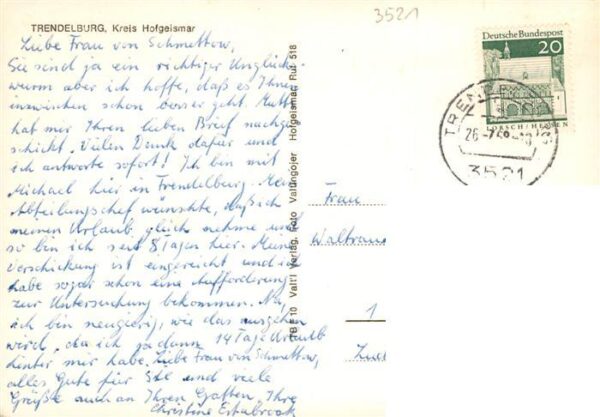 3521
TRENDELBURG, Kreis Hofgeismar
Liebe Frau von Schmettow,
Sie sind ja ein richtiger Unglücks
wurm aber ich hoffe, daß es Ihnen
inzwischen schon besser geht. Mutti
hat mir Ihren lieben Brief nachge
schickt. Vielen Dank dafür und
ich antworte sofort! Ich bin mit
Michael hier in Trendelburg. Mein
Abteilungschef wünschte, daß ich
meinen Urlaub gleich nehme und
so bin ich seit 8 Tagen hier. Meine
Verschickung ist eingereicht und ich
habe sogar schon eine Aufforderung
zur Untersuchung bekommen. Na,
ich bin neugierig, wie das ausgehen
wird, da ich ja dann 14 Tage Urlaub
hinter mir habe. Liebe Frau von Schmettow,
alles Gute für Sie und viele
Grüße auch an Ihren Gatten, Ihre
Christine
Verlag, Foto Hofgeismar, Ruf 518
Deutsche Bundespost
20
LORSCH/HESSEN
3521
Frau
Waltrau
1